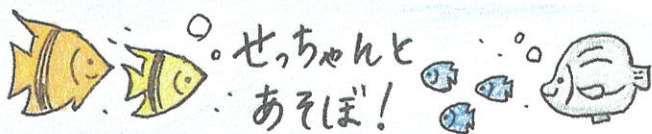 せっちゃんと
あそぼ！